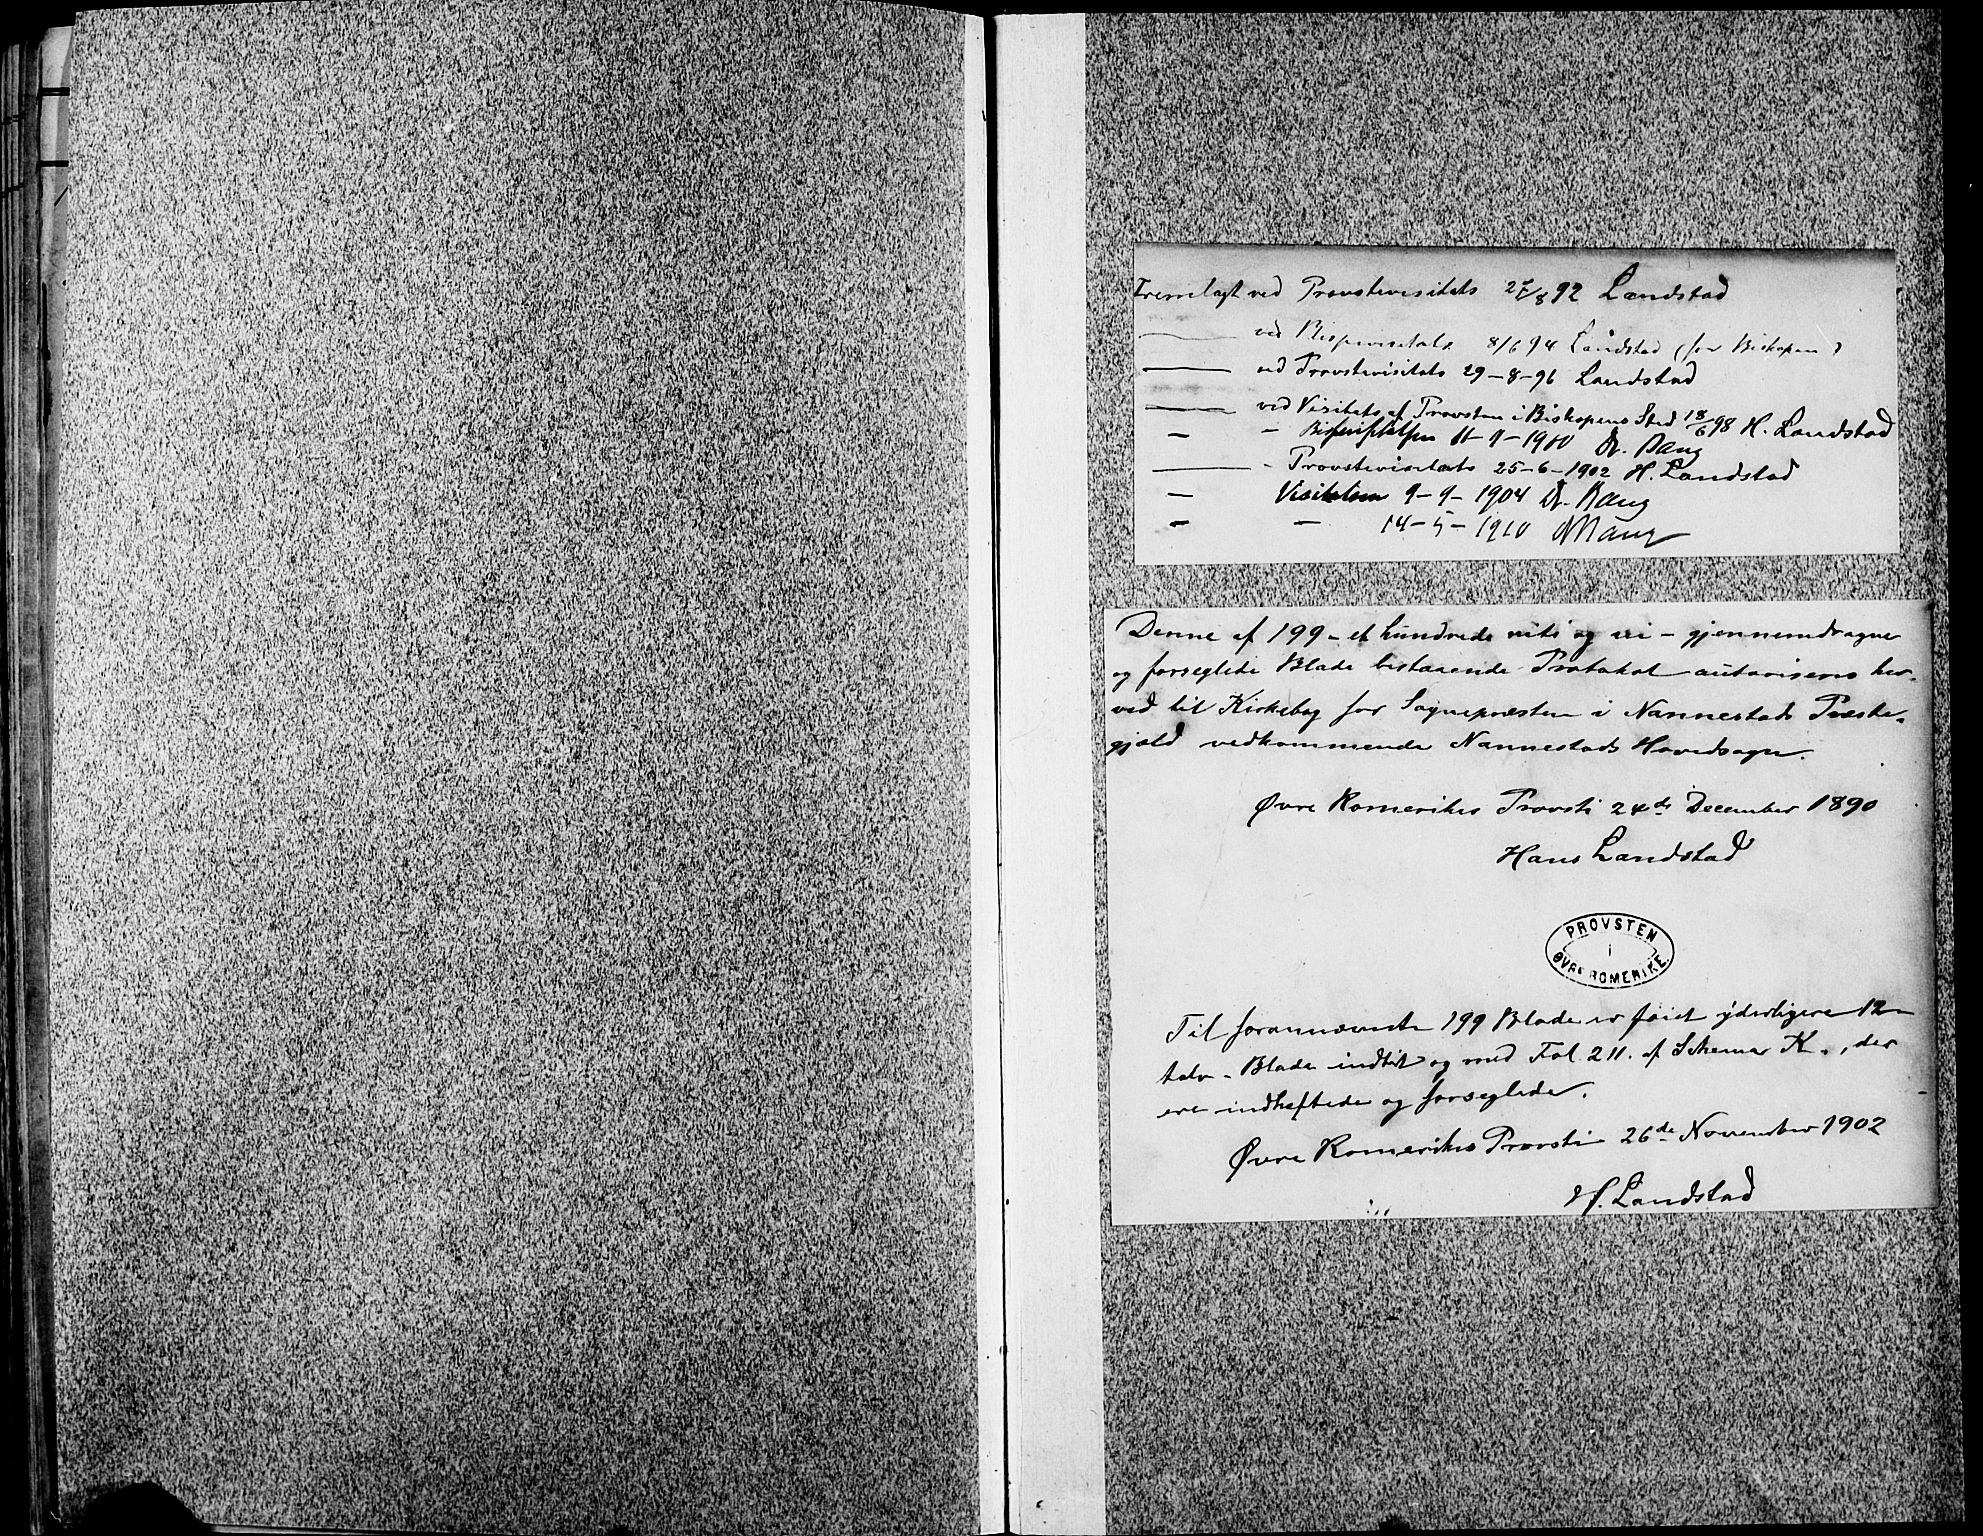 Fremlagt ved Provstevisitats 27/8 92 Landstad
ved Bispevisitats 8/6 94 Landstad (for Biskopen)
ved Provstevisitats 29-8-96 Landstad
ved Visitats af Provsten i Biskopens Sted 18/6 98 H. Landstad
- - 11-9-1900 Dr. Bang
- Provstevisitats 25-6-1902 H. Landstad
- Visitatsen 9-9-1904 Dr. Bang
- - 14-5-1910 Bang
Denne af 199 - et hundrede niti og ni - gjennemdragne
og forseglede Blade bestaaende Protokol autoriseres her-
ved til Kirkebog for Sognepræsten i Nannestads Præste-
gjæld vedkommende Nannestads Hovedsogn.
Øvre Romerikes Provsti 24de December 1890
Hans Landstad
PROVSTEN
i
ØVRE ROMERIKE.
Til forannævnte 199 Blade er føiet yderligere 12 -
tolv - Blade indtil og med Fol 211. af Schema K., der
ere indheftede og forseglede.
Øvre Romerikes Provsti 26de November 1902
H. Landstad